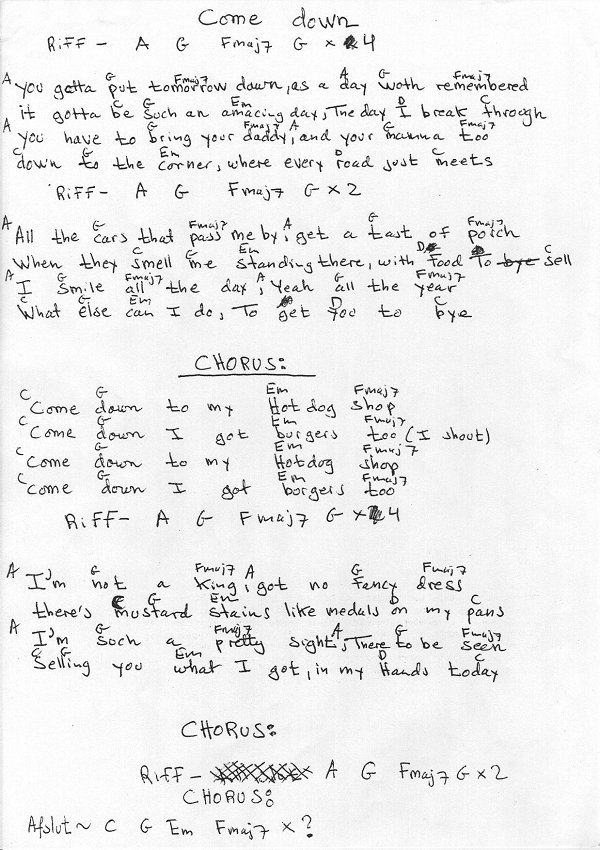 Come down
Riff - A G Fmaj7 G x 4
A G Fmaj7 A G Fmaj7
you gotta put tomorrow down, as a day woth remembered
C G Em D C
it gotta be such an amacing day, The day I break through
A G Fmaj7 A G Fmaj7
you have to bring your daddy, and your mamma too
C G Em D C
down to the corner, where every road just meets
Riff - A G Fmaj7 G x 2
A G Fmaj7 A G Fmaj7
All the cars that pass me by, get a tast of porch
C G Em D C
When they smell me standing there, with food To bye sell
A G Fmaj7 A G Fmaj7
I smile all the day, Yeah all the year
C G Em D C
What else can I do, To get you to bye
CHORUS:
C G Em Fmaj7
Come down to my Hotdog shop
C G Em Fmaj7
Come down I got burgers too (I shout)
C G Em Fmaj7
Come down to my Hotdog shop
C G Em Fmaj7
Come down I got burgers too
Riff - A G Fmaj7 G x 4
A G Fmaj7 A G Fmaj7
I'm not a King, got no fancy dress
C G Em D C
there's mustard stains like medals on my pans
A G Fmaj7 A G Fmaj7
I'm such a pretty sight, There to be seen
C G Em D C
Selling you what I got, in my Hands today
CHORUS:
Riff - A G Fmaj7 G x 2
CHORUS:
Afslut ~ C G Em Fmaj7 x ?